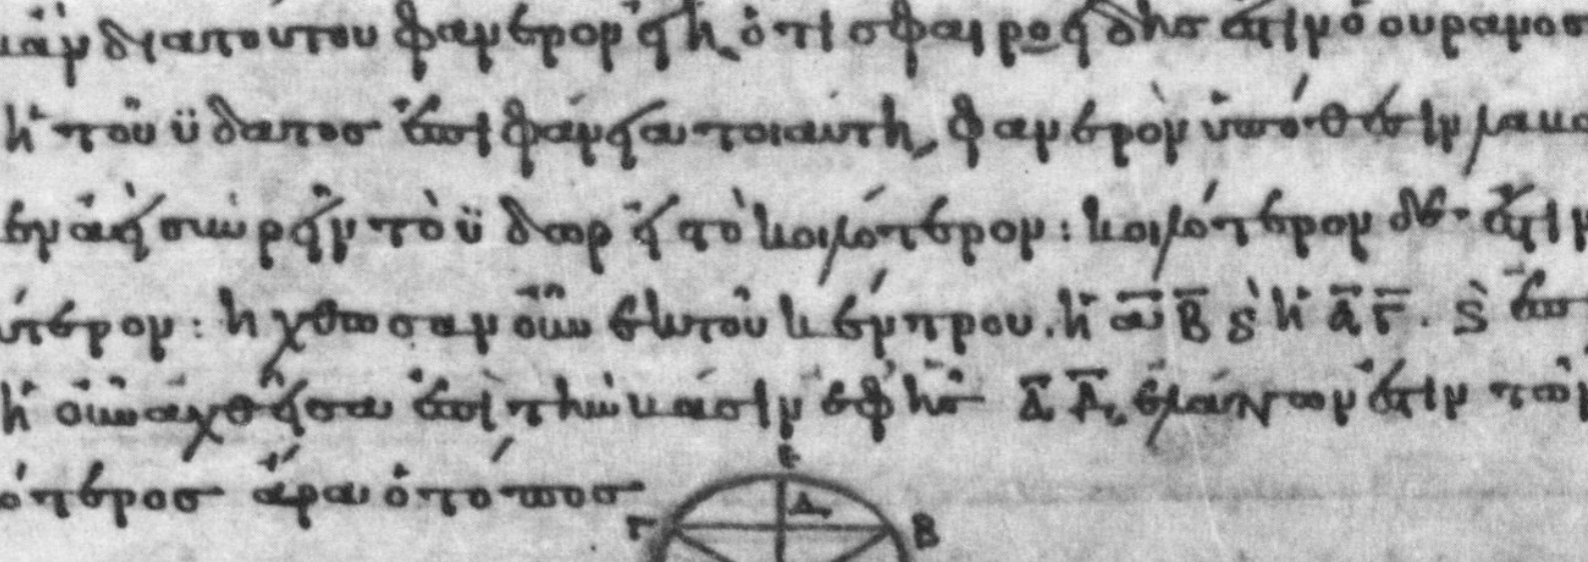 κἂν διατούτου φανερον εἴη, ὁτι σφαιροειδης ἐστιν ὁ ουρανοσ
ἡ τοῦ ϋδατοσ ἐπιφάνεια τοιαύτη, φανερὸν ὑπόθεσιν λαβο
εν ἀεὶ συρρεῖν τὸ ϋδωρ εἰ τὸ κοιλότερον : κοιλότερον δέ ἐστιν
ύτερον : ηχθωσαν οὖν ἐκτοῦ κέντρου. ἡ α̅ Β̅ καὶ ἡ Α̅ Γ̅. καὶ ἐπ
ἡ οὖν ἀχθεῖσα ἐπὶ τὴν βάσιν εφ ἧσ Α̅ Δ̅, ἐλάττων ἐστιν τῶν
ότεροσ ἄρα ὁ τόποσ
Ε
Δ
Γ Β